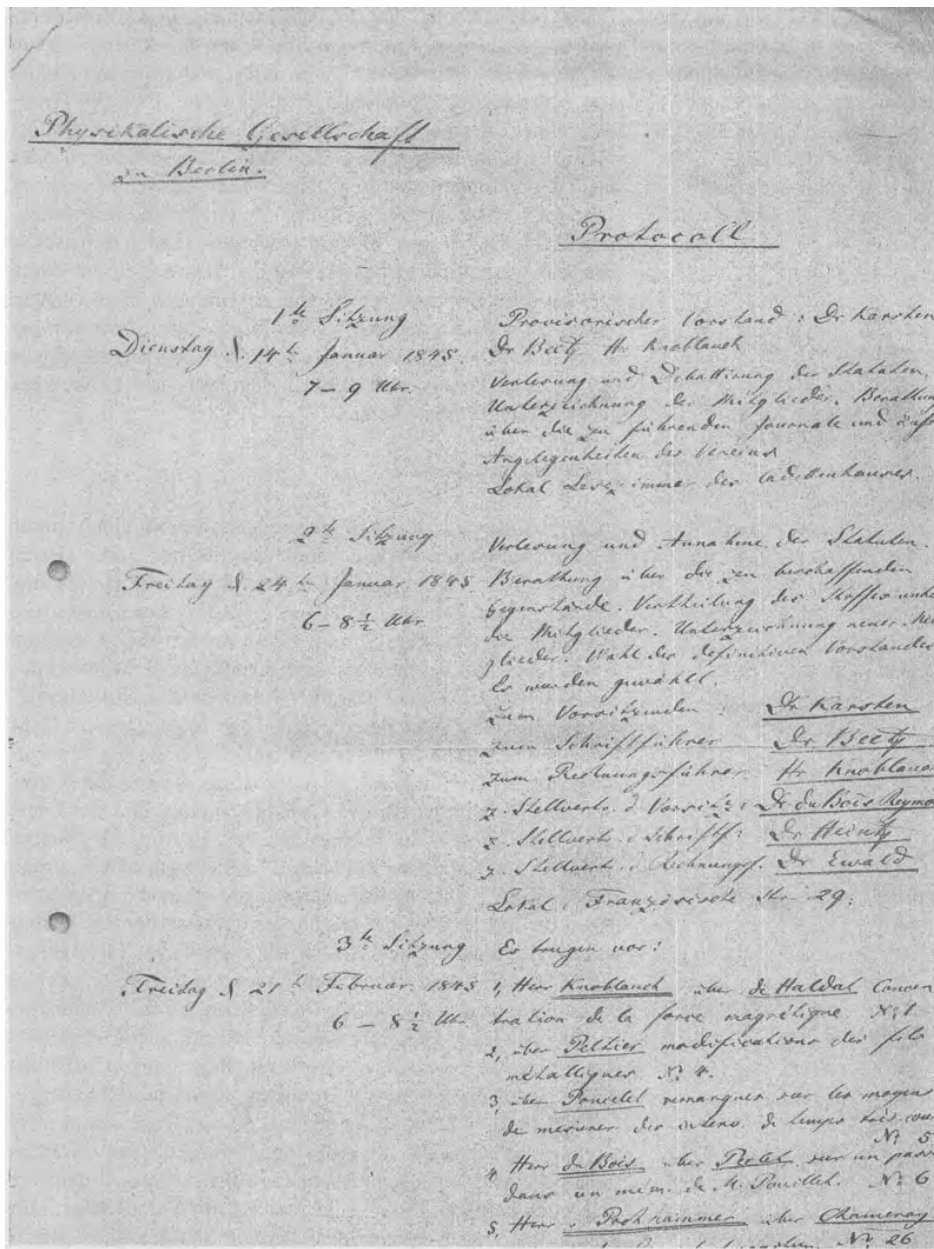 Physikalische Gesellschaft
zu Berlin.
Protocoll
1te Sitzung
Dienstag d. 14ten Januar 1845
7 – 9 Uhr.
Provisorischer Vorstand: Dr Karsten
Dr Beetz Hr Knoblauch
Verlesung und Debattirung der Statuten.
Unterzeichnung der Mitglieder. Berathung
über die zu führenden Journale und
Angelegenheiten des Vereins
Lokal Lesezimmer des Cadettenhauses.
2te Sitzung
Freitag d. 24ten Januar 1845
6 – 8 1/2 Uhr
Verlesung und Annahme der Statuten.
Berathung über die zu beschaffenden
Gegenstände. Vertheilung des Stoffes unter
die Mitglieder. Unterzeichnung neuer Mit
glieder. Wahl des definitiven Vorstandes
Es wurden gewählt.
zum Vorsitzenden: Dr Karsten
zum Schriftführer Dr Beetz
zum Rechnungsführer Hr Knoblauch
z. Stellvertr. d. Vorsitz: Dr du Bois Reymo
z. Stellvertr. d. Schriftf: Dr Heintz
z. Stellvertr. d. Rechnungsf. Dr Ewald
Lokal: Französische Str. 29.
3te Sitzung
Freitag d. 21ten Februar 1845
6 – 8 1/2 Uhr.
Es trugen vor:
1, Herr Knoblauch über de Haldat Concen
tration de la force magnétique No 1
2, über Peltier modifications des fils
métalliques No 4.
3, über Pouillet remarques sur les moyens
de mesurer des interv. de temps très cour
No 5
4, Herr du Bois über sur un pass
dans un mém. de M. Pouillet. No 6
5, Herr über
No 26